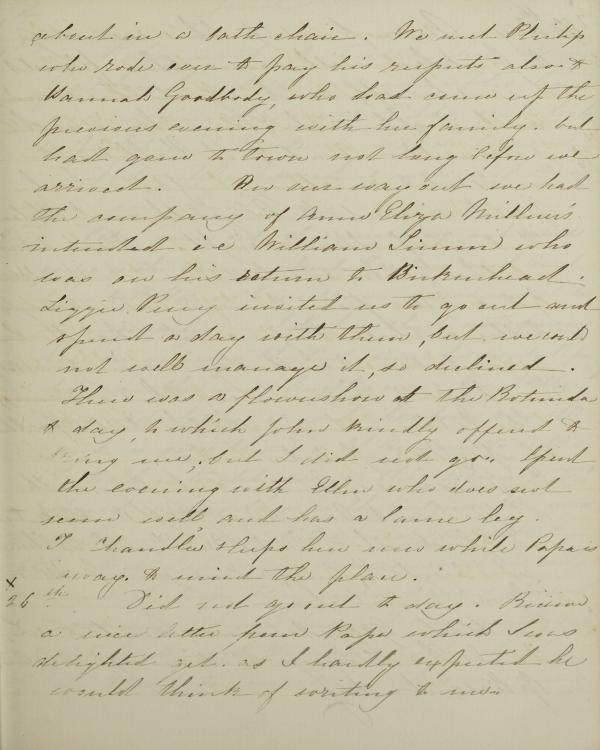 about in a bath chair. We met Philip
who rode over to pay his respects also &
Hannah Goodbody, who had come up the
previous evening with her family. but
had gone to town not long before we
arrived. On our way out we had
the company of Anne Eliza Milner's
intended i e William who
was on his return to Birkenhead.
Lizzie invited us to go out and
spend a day with them, but we could
not well manage it, so declined.
There was a flowershow at the Rotunda
to day, to which John kindly offered to
bring me, but I did not go. Spent
the evening with Ellen who does not
seem well, and has a lame leg.
T Chandlee sleeps here now while Papa is
away. to mind the place.
x
26th. Did not go out to day. Received
a nice letter from Papa which I was
delighted at. as I hardly expected he
would think of writing to me.